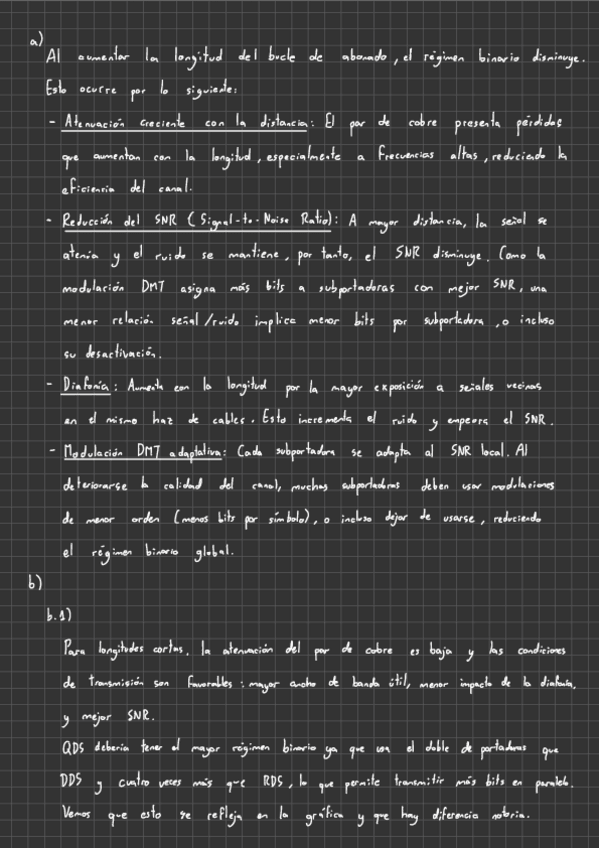 a)
Al aumentar la longitud del bucle de abonado, el régimen binario disminuye.
Esto ocurre por lo siguiente:
- Atenuación creciente con la distancia: El par de cobre presenta pérdidas
que aumentan con la longitud, especialmente a frecuencias altas, reduciendo la
eficiencia del canal.
- Reducción del SNR (Signal-to-Noise Ratio): A mayor distancia, la señal se
atenúa y el ruido se mantiene, por tanto, el SNR disminuye. Como la
modulación DMT asigna más bits a subportadoras con mejor SNR, una
menor relación señal/ruido implica menor bits por subportadora, o incluso
su desactivación.
- Diafonía: Aumenta con la longitud por la mayor exposición a señales vecinas
en el mismo haz de cables. Esto incrementa el ruido y empeora el SNR.
- Modulación DMT adaptativa: Cada subportadora se adapta al SNR local. Al
deteriorarse la calidad del canal, muchas subportadoras deben usar modulaciones
de menor orden (menos bits por símbolo), o incluso dejar de usarse, reduciendo
el régimen binario global.
b)
b.1)
Para longitudes cortas, la atenuación del par de cobre es baja y las condiciones
de transmisión son favorables: mayor ancho de banda útil, menor impacto de la diafonía,
y mejor SNR.
QDS debería tener el mayor régimen binario ya que usa el doble de portadoras que
DDS y cuatro veces más que RDS, lo que permite transmitir más bits en paralelo.
Vemos que esto se refleja en la gráfica y que hay diferencia notoria.